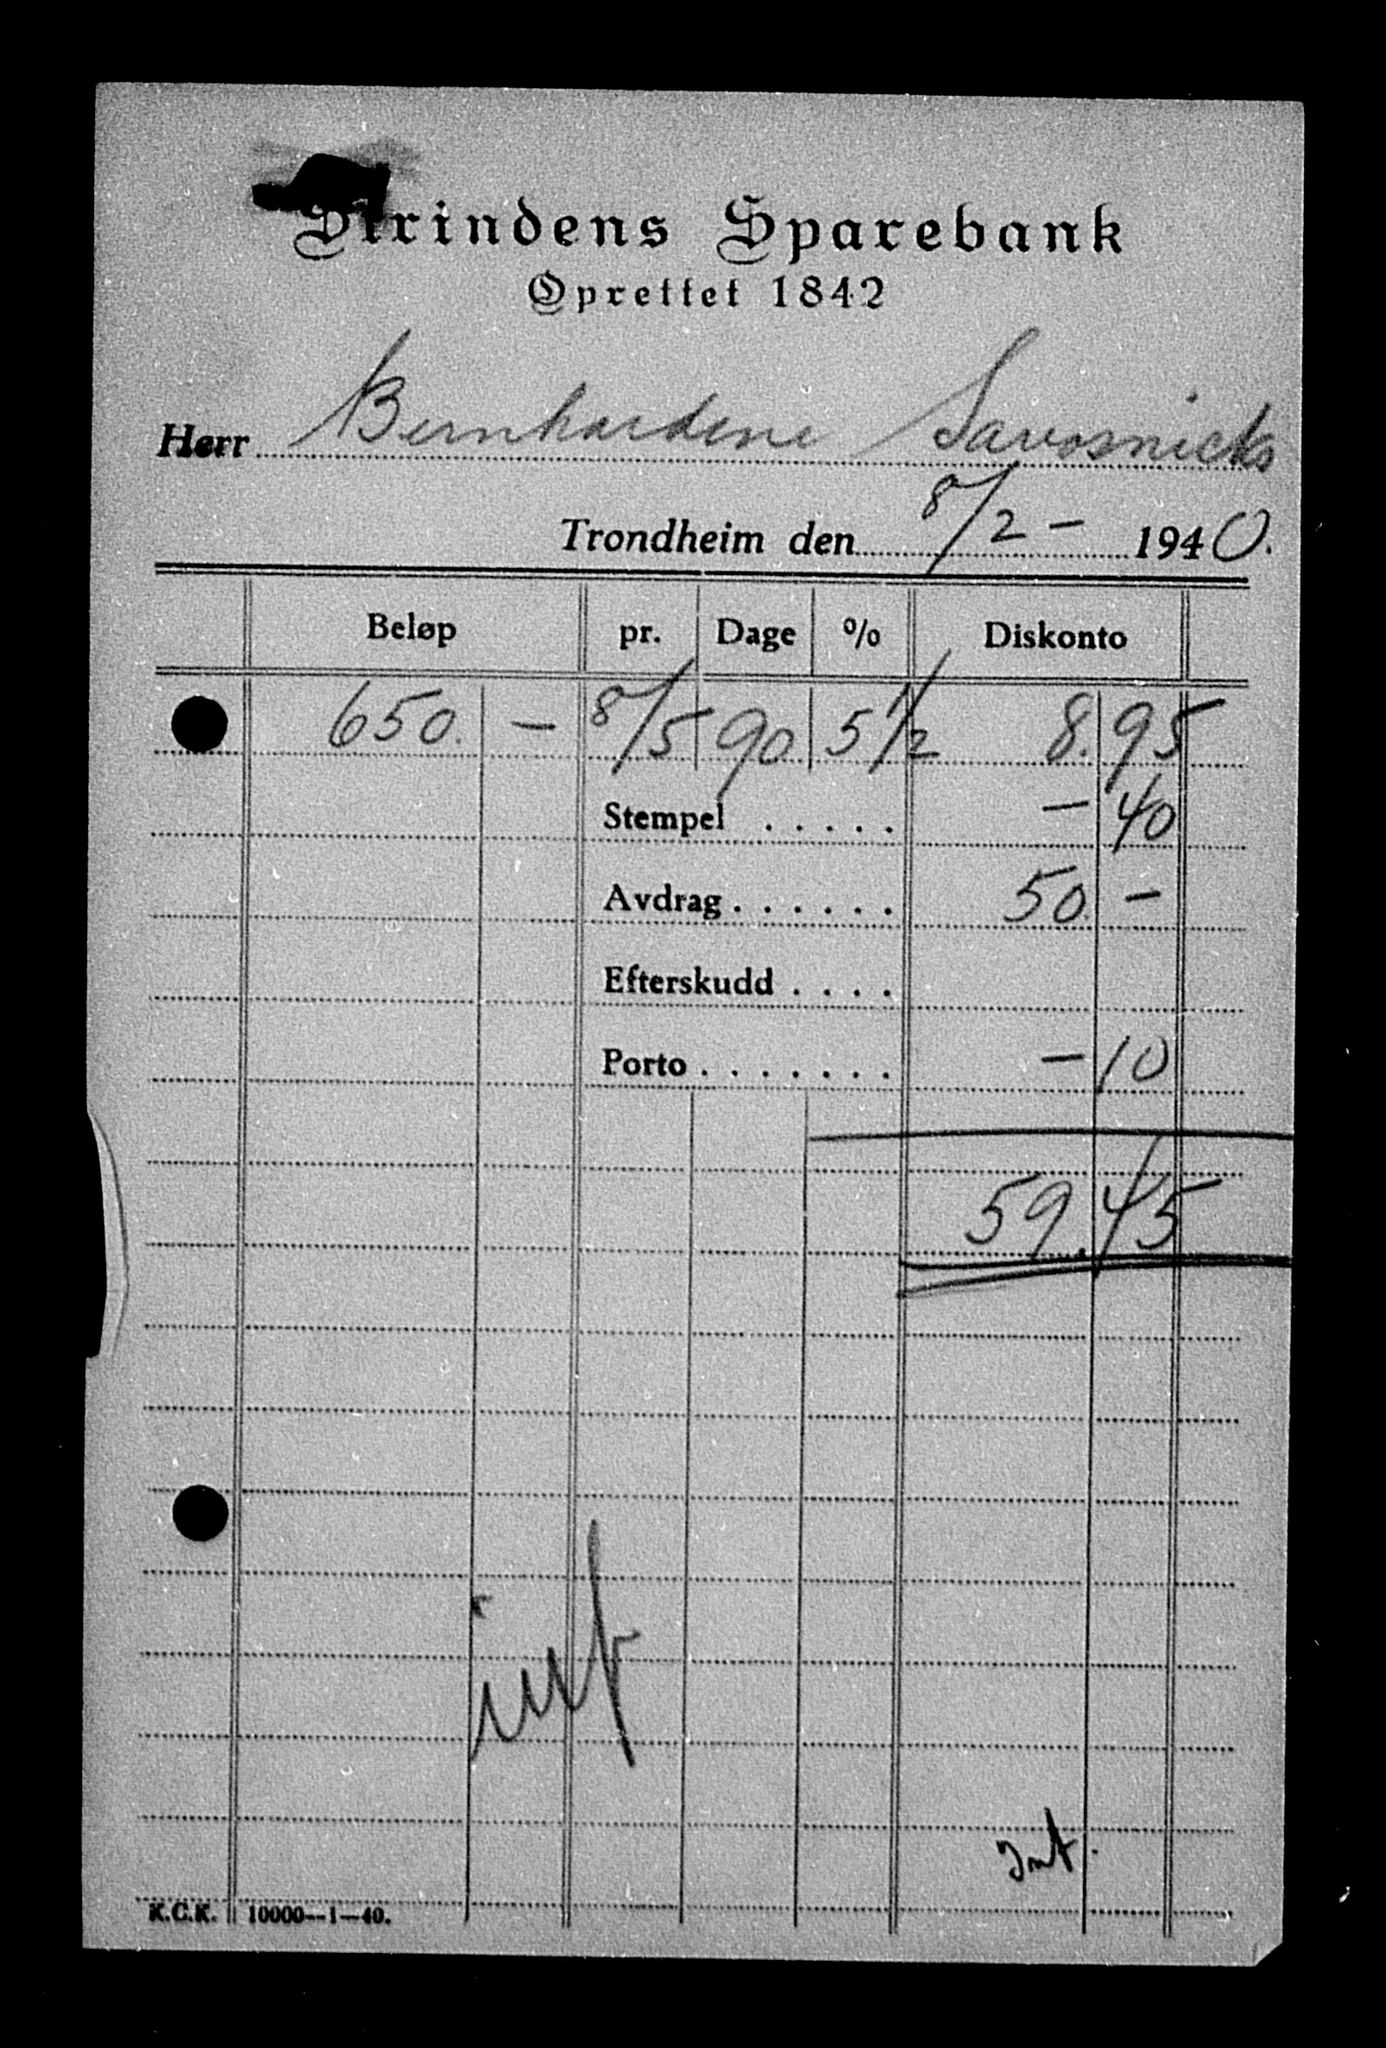 Strindens Sparebank
Oprettet 1842
Herr Bernhardine Savosnicks
Trondheim den 8/2 - 1940.
Beløp pr. Dage % Diskonto
650. - 8/5 90 5 1/2 8.95
Stempel . . . . . - 40
Avdrag . . . . . . 50. -
Efterskudd . . . .
Porto . . . . . . . - 10
59.45
Int.
K.C.K. 10000--1--40.